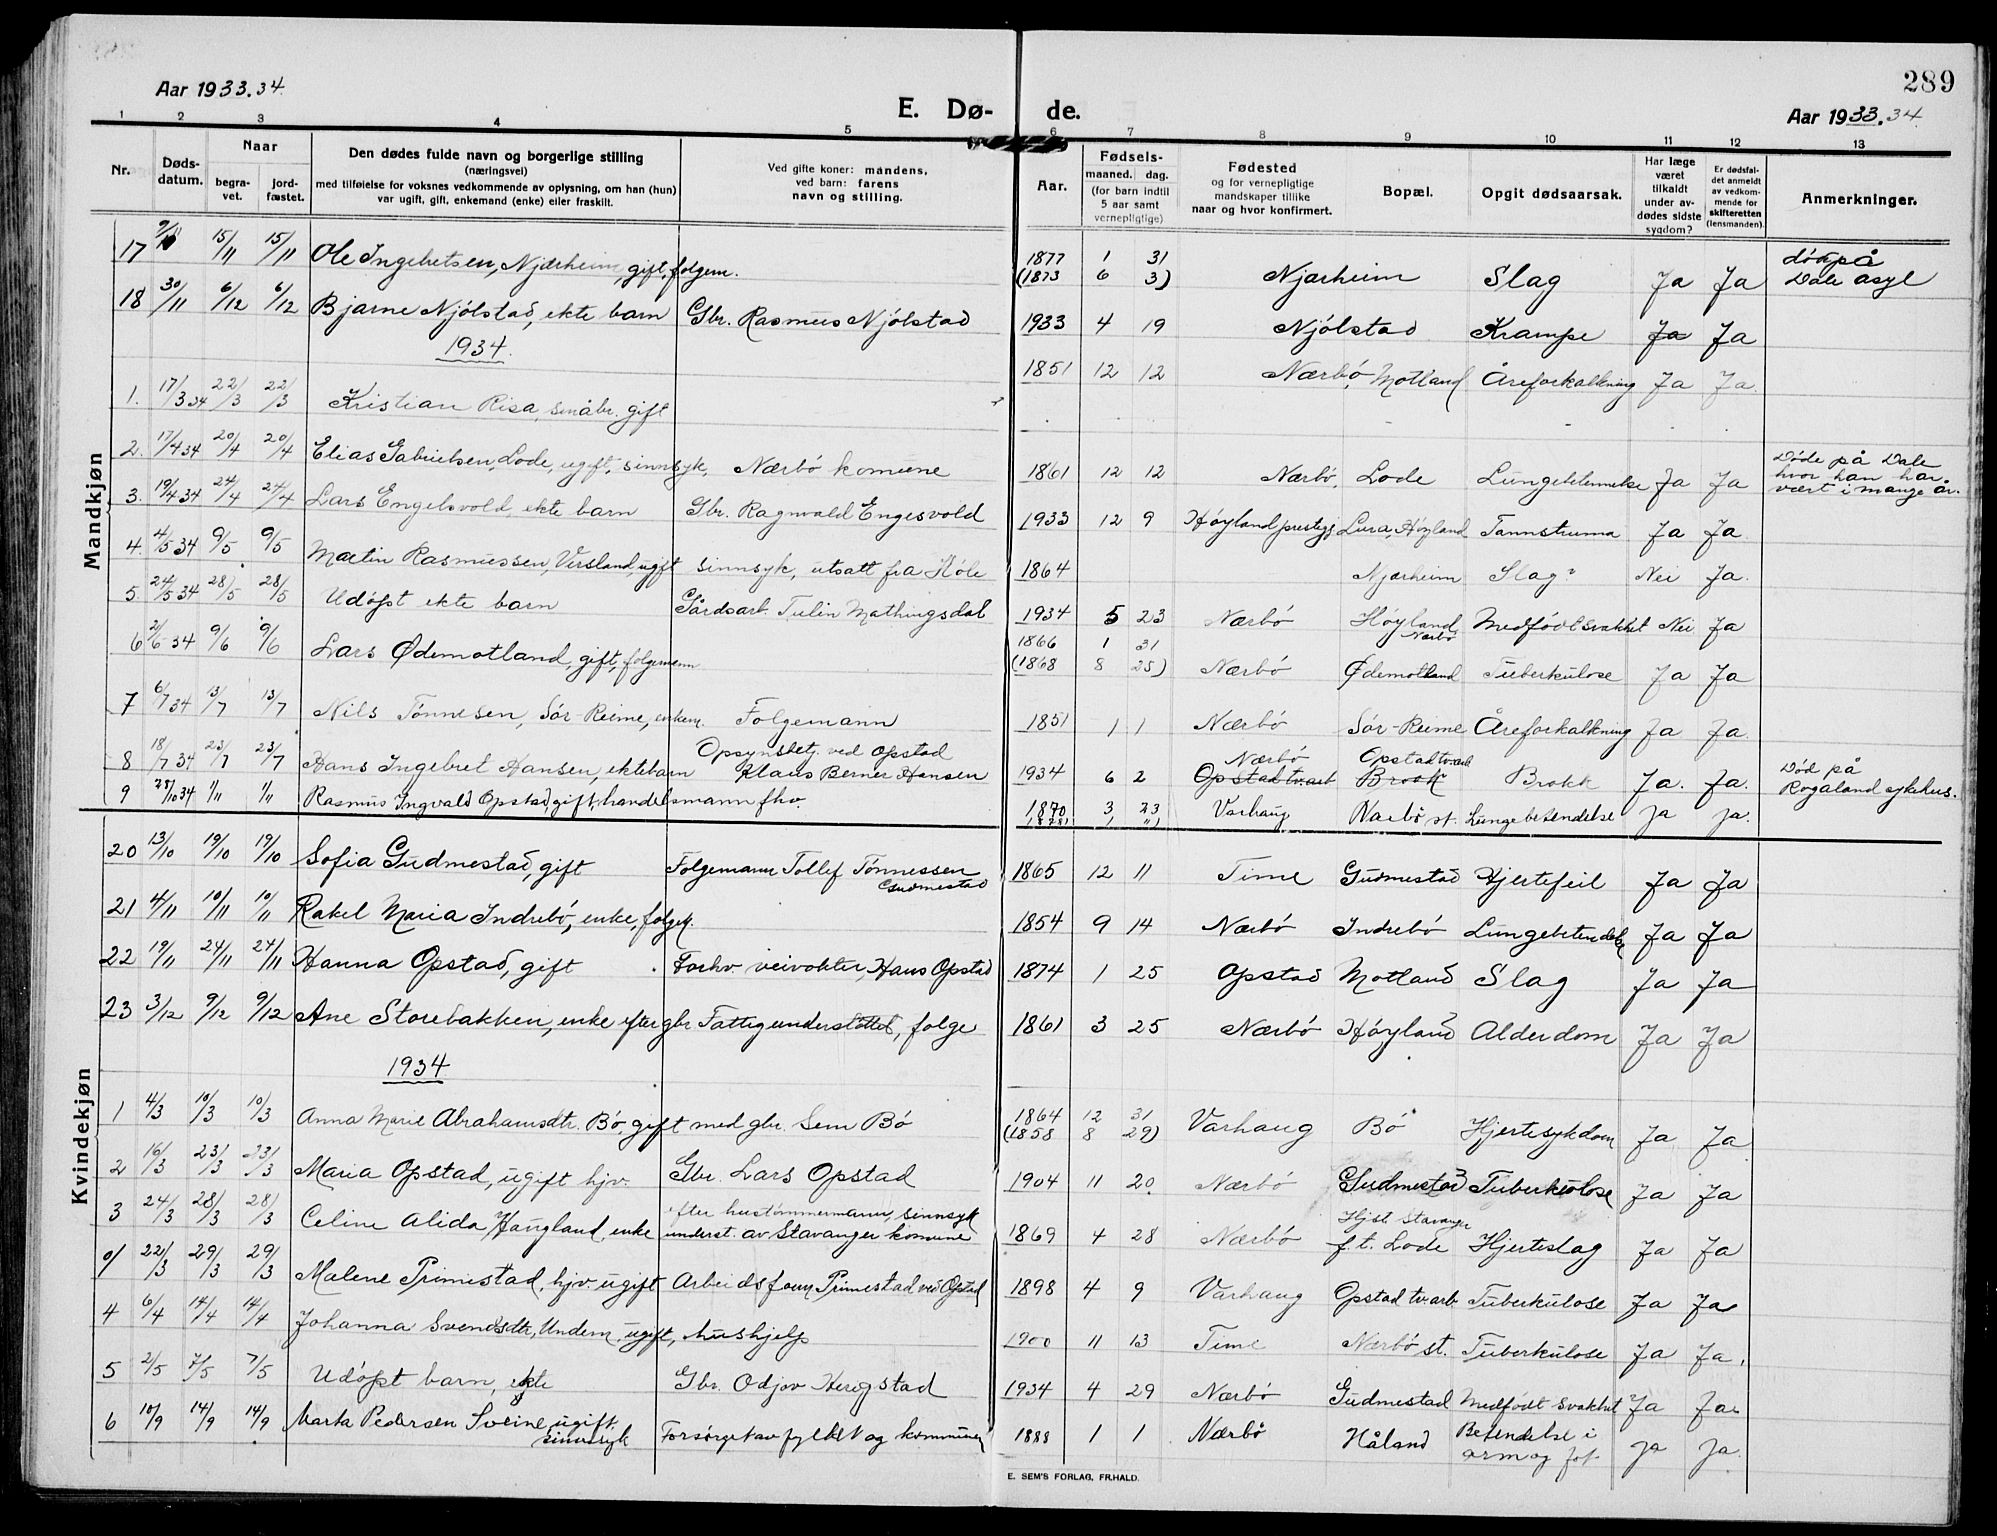 289
Aar 1933.34.
E. Dø- de.
Aar 1933.34
1 2 3 4 5 6 7 8 9 10 11 12 13
Nr. | Døds-datum. | Naar begra-vet. | jord-fæstet. | Den dødes fulde navn og borgerlige stilling (næringsvei) med tilføielse for voksnes vedkommende av oplysning, om han (hun) var ugift, gift, enkemand (enke) eller fraskilt. | Ved gifte koner: mandens, ved barn: farens navn og stilling. | Aar. | Fødsels- maaned. dag. (for barn indtil 5 aar samt vernepligtige) | Fødested og for vernepligtige mandskaper tillike naar og hvor konfirmert. | Bopæl. | Opgit dødsaarsak. | Har læge været tilkaldt under av-dødes sidste sygdom? | Er dødsfal-det anmeldt av vedkom-mende for skifteretten (lensmanden). | Anmerkninger.
Mandkjøn
17 15/11 15/11 Ole Ingebretsen, Njærheim, gift, folgem. 1877 1 31 (1873 6 3) Njærheim Slag Ja Ja død på Dale asyl
18 30/11 6/12 6/12 Bjarne Njólstad, ekte barn Gbr. Rasmus Njólstad 1933 4 19 Njólstad Krampe Ja Ja
1934.
1. 17/3 34 22/3 22/3 Kristian Risa, småbr. gift 1851 12 12 Nærbó, Motland Åreforkalkning Ja Ja.
2. 17/4 34 20/4 20/4 Elias Gabrielsen, Lode, ugift, sinnsyk, Nærbó komune 1861 12 12 Nærbó, Lode Lungebetennelse Ja Ja Døde på Dale hvor han har vært i mange år.
3. 19/4 34 24/4 24/4 Lars Engelsvold, ekte barn Gbr. Ragnvald Engesvold 1933 12 9 Høyland prestegj Lura, Høyland Tannstruma Ja Ja
4. 4/5 34 9/5 9/5 Martin Rasmussen, Versland, ugift sinnsyk, utsatt fra Höle 1864 Njærheim Slag? Nei Ja.
5. 24/5 34 28/5 28/5 Udópt ekte barn Gårdsarb. Tulin Mathingsdal 1934 5 23 Nærbó Høyland Nærbó Medfódt svakhet Nei Ja
6 2/6 34 9/6 9/6 Lars Ødemotland, gift, folgemann 1866 1 31 (1868 8 25) Nærbó Ødemotland Tuberkulose Ja Ja
7 6/7 34 13/7 13/7 Nils Tönnesen, Sör-Reime, enkem. Folgemann 1851 1 1 Nærbó Sór-Reime Åreforkalkning Ja Ja
8 18/7 34 23/7 23/7 Hans Ingebret Hansen, ektebarn Opsynsbetj. ved Opstad Klaus Berner Hansen 1934 6 2 Nærbó Opstad tv.arb Opstad tv.arb Brokk Brokk Ja. Ja.
9 28/10 34 1/11 1/11 Rasmus Ingvald Opstad, gift, handelsmann fhv. 1870 3 23 Varhaug Nærbö st. Lungebetendelse Ja Ja. Död på Rogaland sykehus.
Kvindekjøn
20 13/10 19/10 19/10 Sofia Gudmestad, gift Folgemann Tollef Tónnessen Gudmestad 1865 12 11 Time Gudmestad Hjertefeil Ja Ja
21 4/11 10/11 10/11 Rakel Maria Indrebó, enke, folgek. 1854 9 14 Nærbó Indrebó Lungebetendelse Ja Ja
22 19/11 24/11 24/11 Hanna Opstad, gift Forhv veivokter, Hans Opstad 1874 1 25 Opstad Motland Slag Ja Ja
23 3/12 9/12 9/12 Ane Storebakken, enke efter gbr Fattigunderstóttet, folge 1861 3 25 Nærbó Høyland Alderdom Ja Ja
1934
1 4/3 10/3 10/3 Anna Marie Abrahamsdtr. Bó, gift med gbr. Sem Bó 1864 12 31 (1858 8 29) Varhaug Bó Hjertesykdom Ja Ja
2 16/3 23/3 23/3 Maria Opstad, ugift hjv. Gbr. Lars Opstad 1904 11 20 Nærbó Gudmestad Tuberkulose Ja Ja
3 24/3 28/3 28/3 Celine Alida Haugland, enke efter hustómmermann, sinnsyk underst. av Stavanger komune 1869 4 28 Nærbó Hjst. Stavanger f.t. Lode Hjerteslag Ja Ja
0/ 22/3 29/3 29/3 Malene Primestad, hjv. ugift Arbeidsform Primestad ved Opstad 1898 4 9 Varhaug Opstad tv.arb Tuberkulose Ja Ja
4 6/4 14/4 14/4 Johanna Svendsdtr, Undem, ugift, hushjelp 1900 11 13 Time Nærbó st. Tuberkulose Ja Ja,
5 2/5 7/5 7/5 Udópt barn, ekte Gbr. Odjov Heigstad 1934 4 29 Nærbó Gudmestad Medfódt svakhet Ja Ja
6 10/9 14/9 14/9 Marta Pedersen Sveine, ugift, sinnssyk Forsórget av fylket og kommunen 1888 1 1 Nærbó Håland Betendelse i arm og fot Ja Ja.
E. SEM'S FORLAG, FR.HALD.